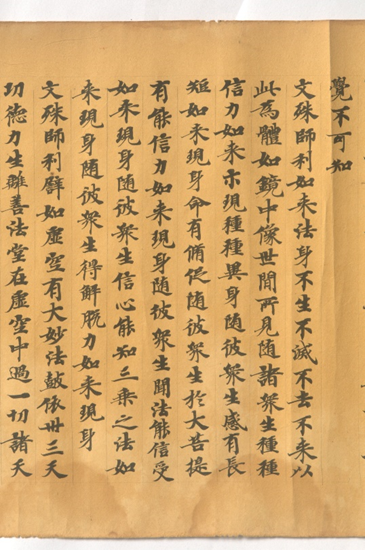 覺不可知
文殊師利如来法身不生不滅不去不来以
此為體如鏡中像世間所見随諸衆生種種
信力如来示現種種異身随彼衆生感有長
短如来現身命有脩促随彼衆生於大菩提
有能信力如来現身随彼衆生聞法能信受
如来現身随彼衆生信心能知三乗之法如
来現身随彼衆生得解脱力如来現身
文殊師利辟如虚空有大妙法皷依卅三天
功徳力生離善法堂在虚空中過一切諸天